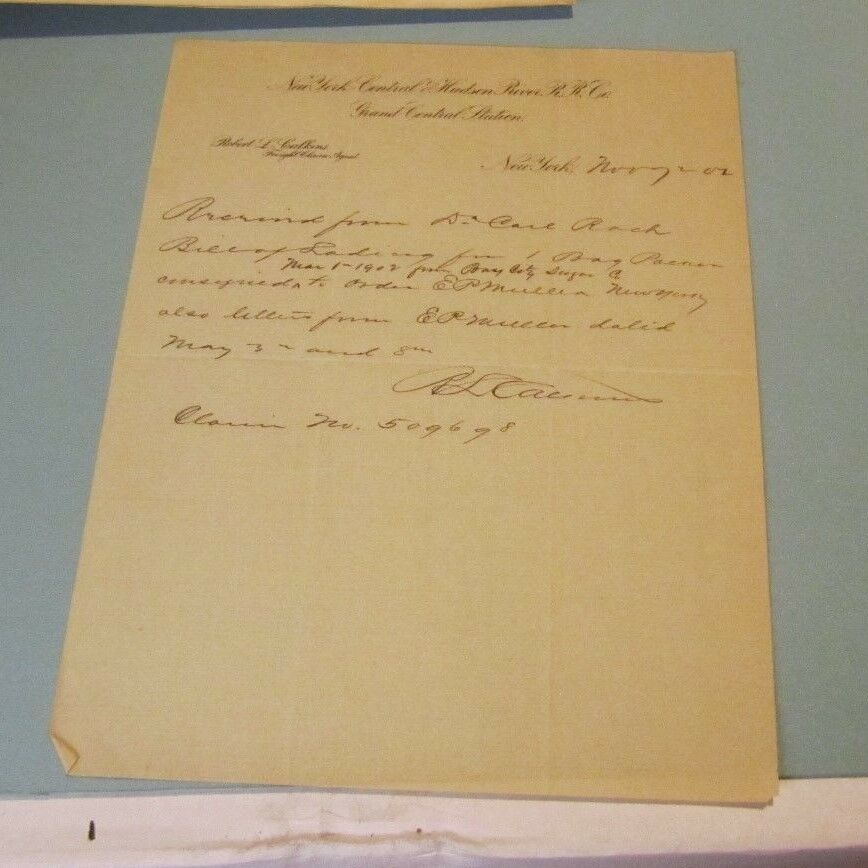 New York Central & Hudson River R.R. Co.
Grand Central Station.
Robert L. Calkins
Freight Claim Agent
New York, Nov 7 02
Received from Dr Carl Rach
Bill of Lading for 1 Bag
Mar 1- 1902 from Bay City Sugar Co
consigned to order E P Muller New York
also letters from E P Muller dated
May 3rd and 8th
R L Calkins
Claim No. 509698